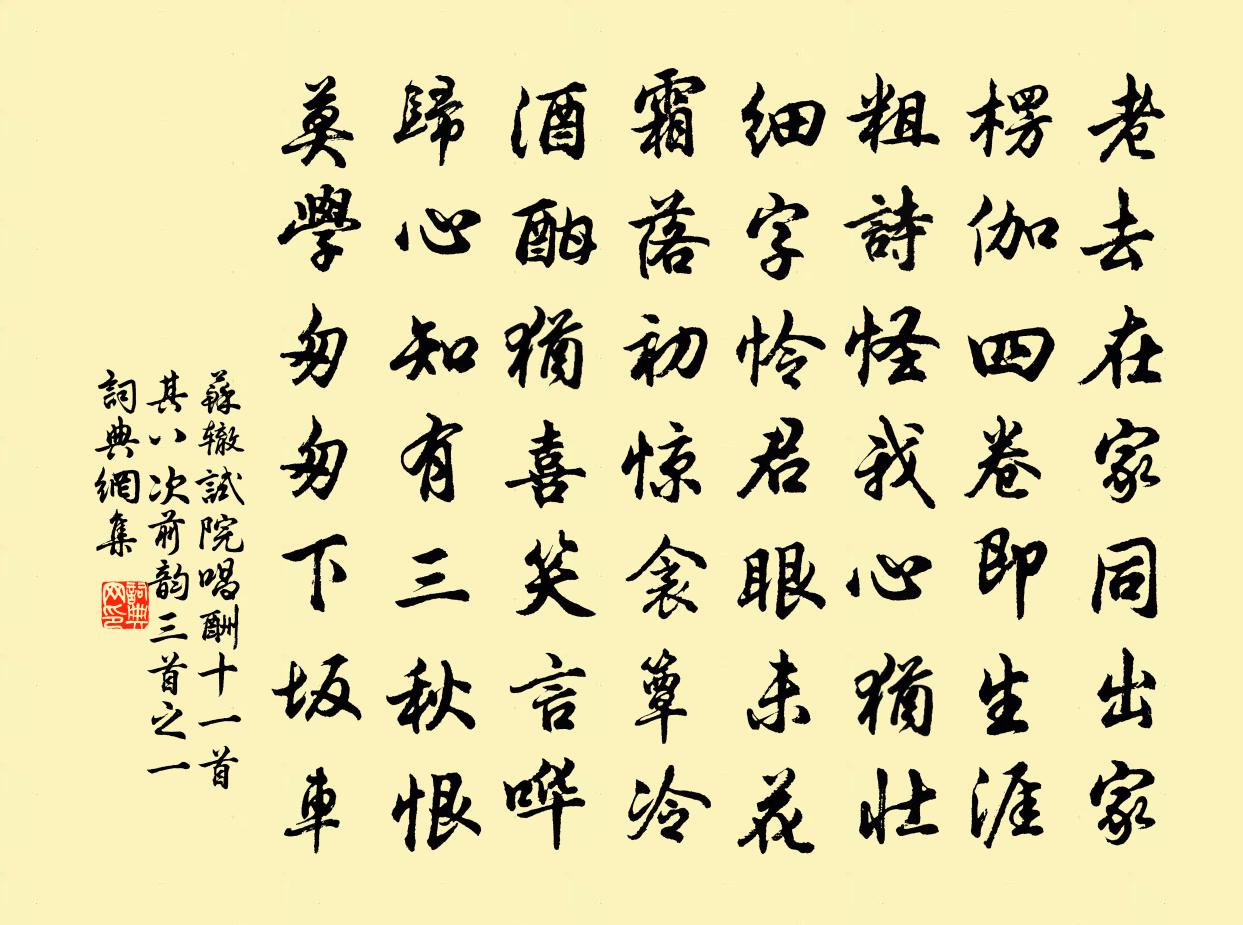 老去在家同出家
楞伽四卷即生涯
粗詩怪我心猶壮
细字怜君眼未花
霜落初惊衾簟冷
酒酣猶喜笑言哗
歸心知有三秋恨
莫學匆匆下坂車
蘇辙試院唱酬十一首
其八次前韵三首之一
詞典網集
詞典
网印